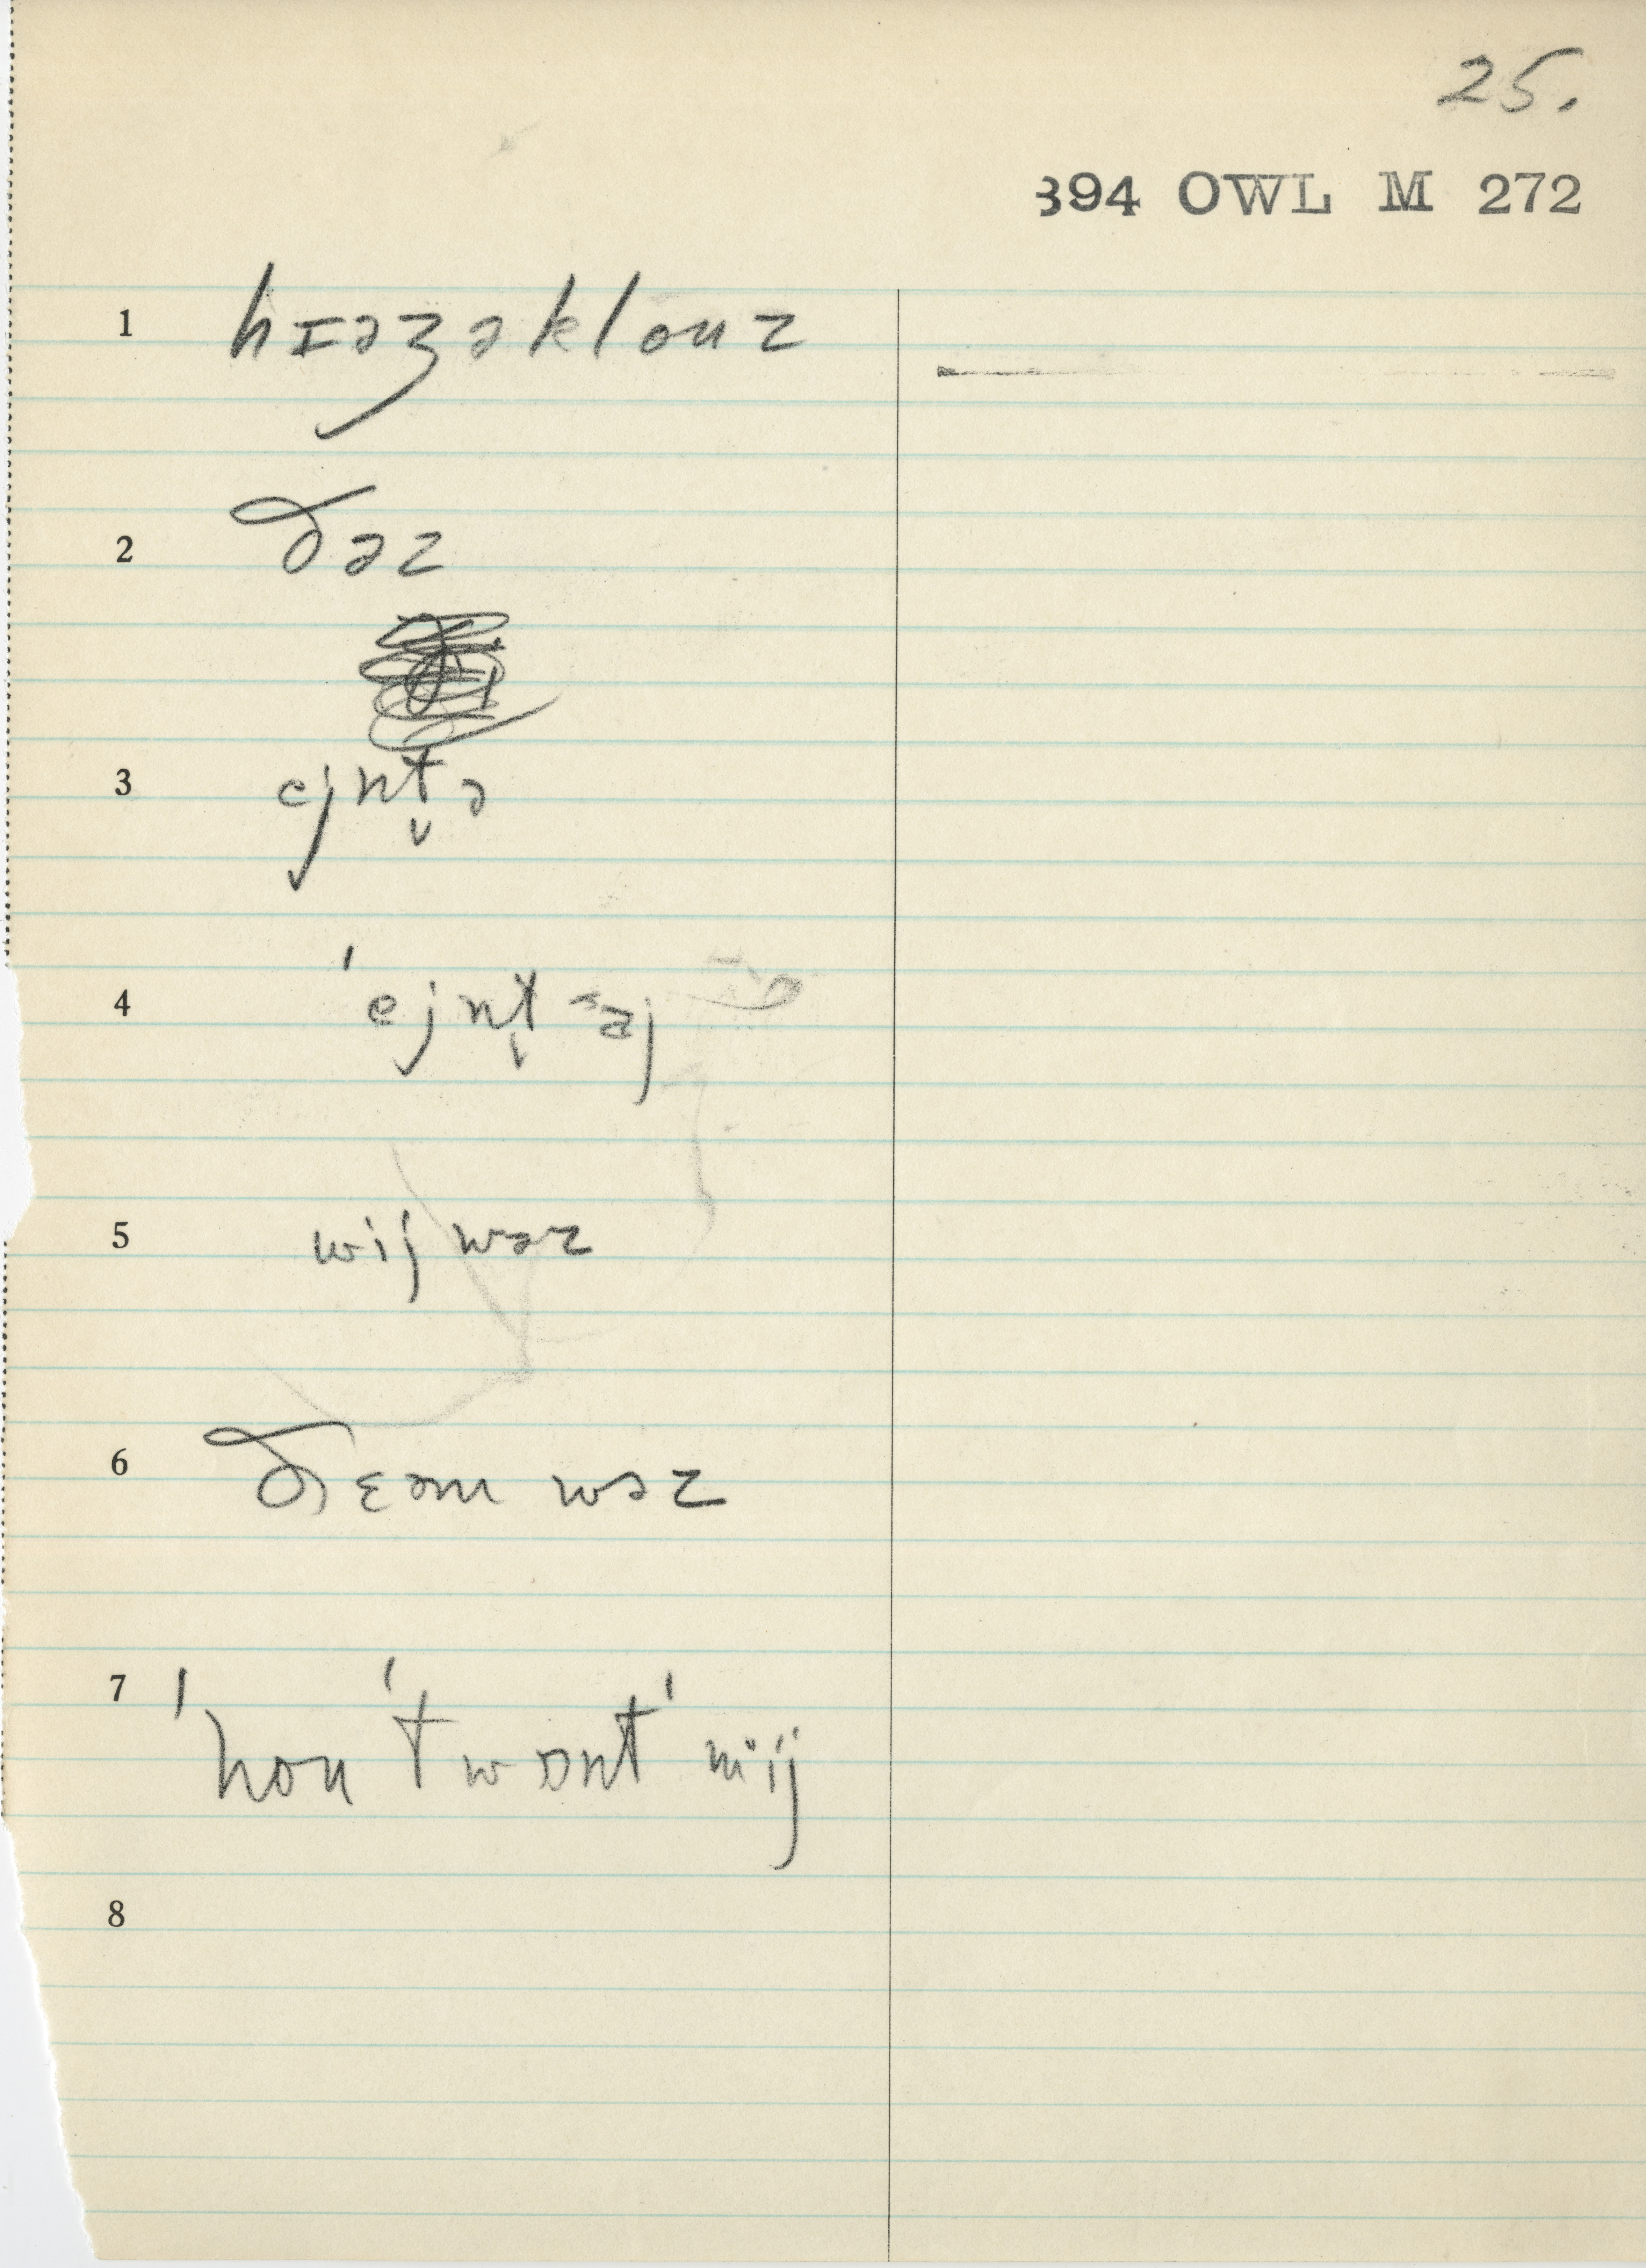 25.
394 OWL M 272
1 hɪəʒəklouz
2 ðəz
3 ejnt̬ə
4 ˈejnt̬
5 wij wəz
6 ðɛəm wəz
7 ˈhouˈtwɒntˈmij
8